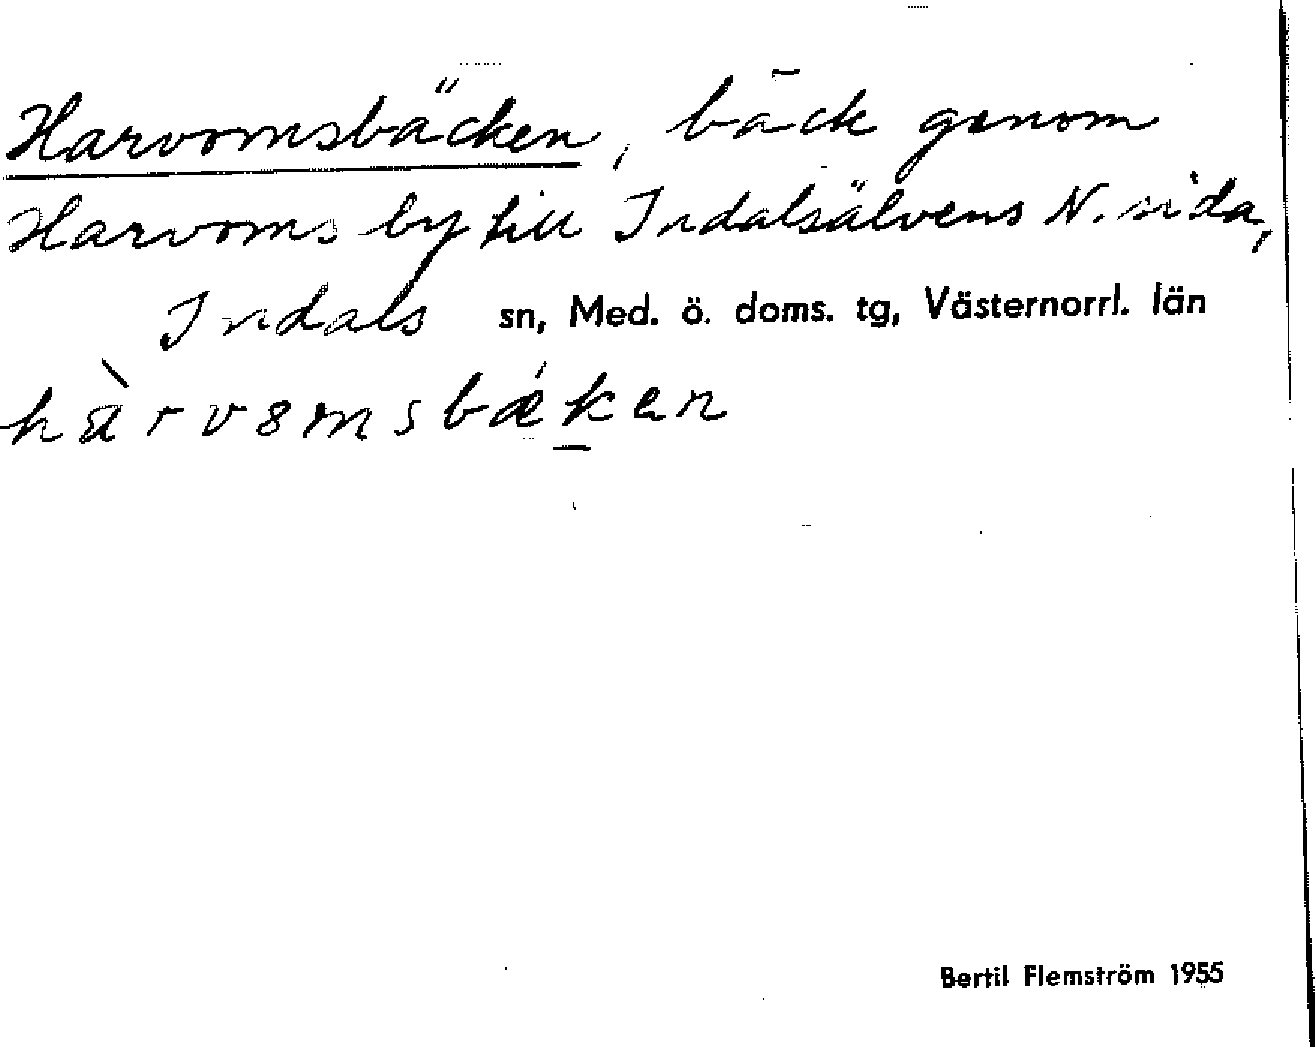 Harvomsbäcken, bäck genom
Harvoms by till Indalsälvens N. sida,
Indals sn, Med. ö. doms. tg, Västernorrl. län
hàrv8msbǽken
Bertil Flemström 1955